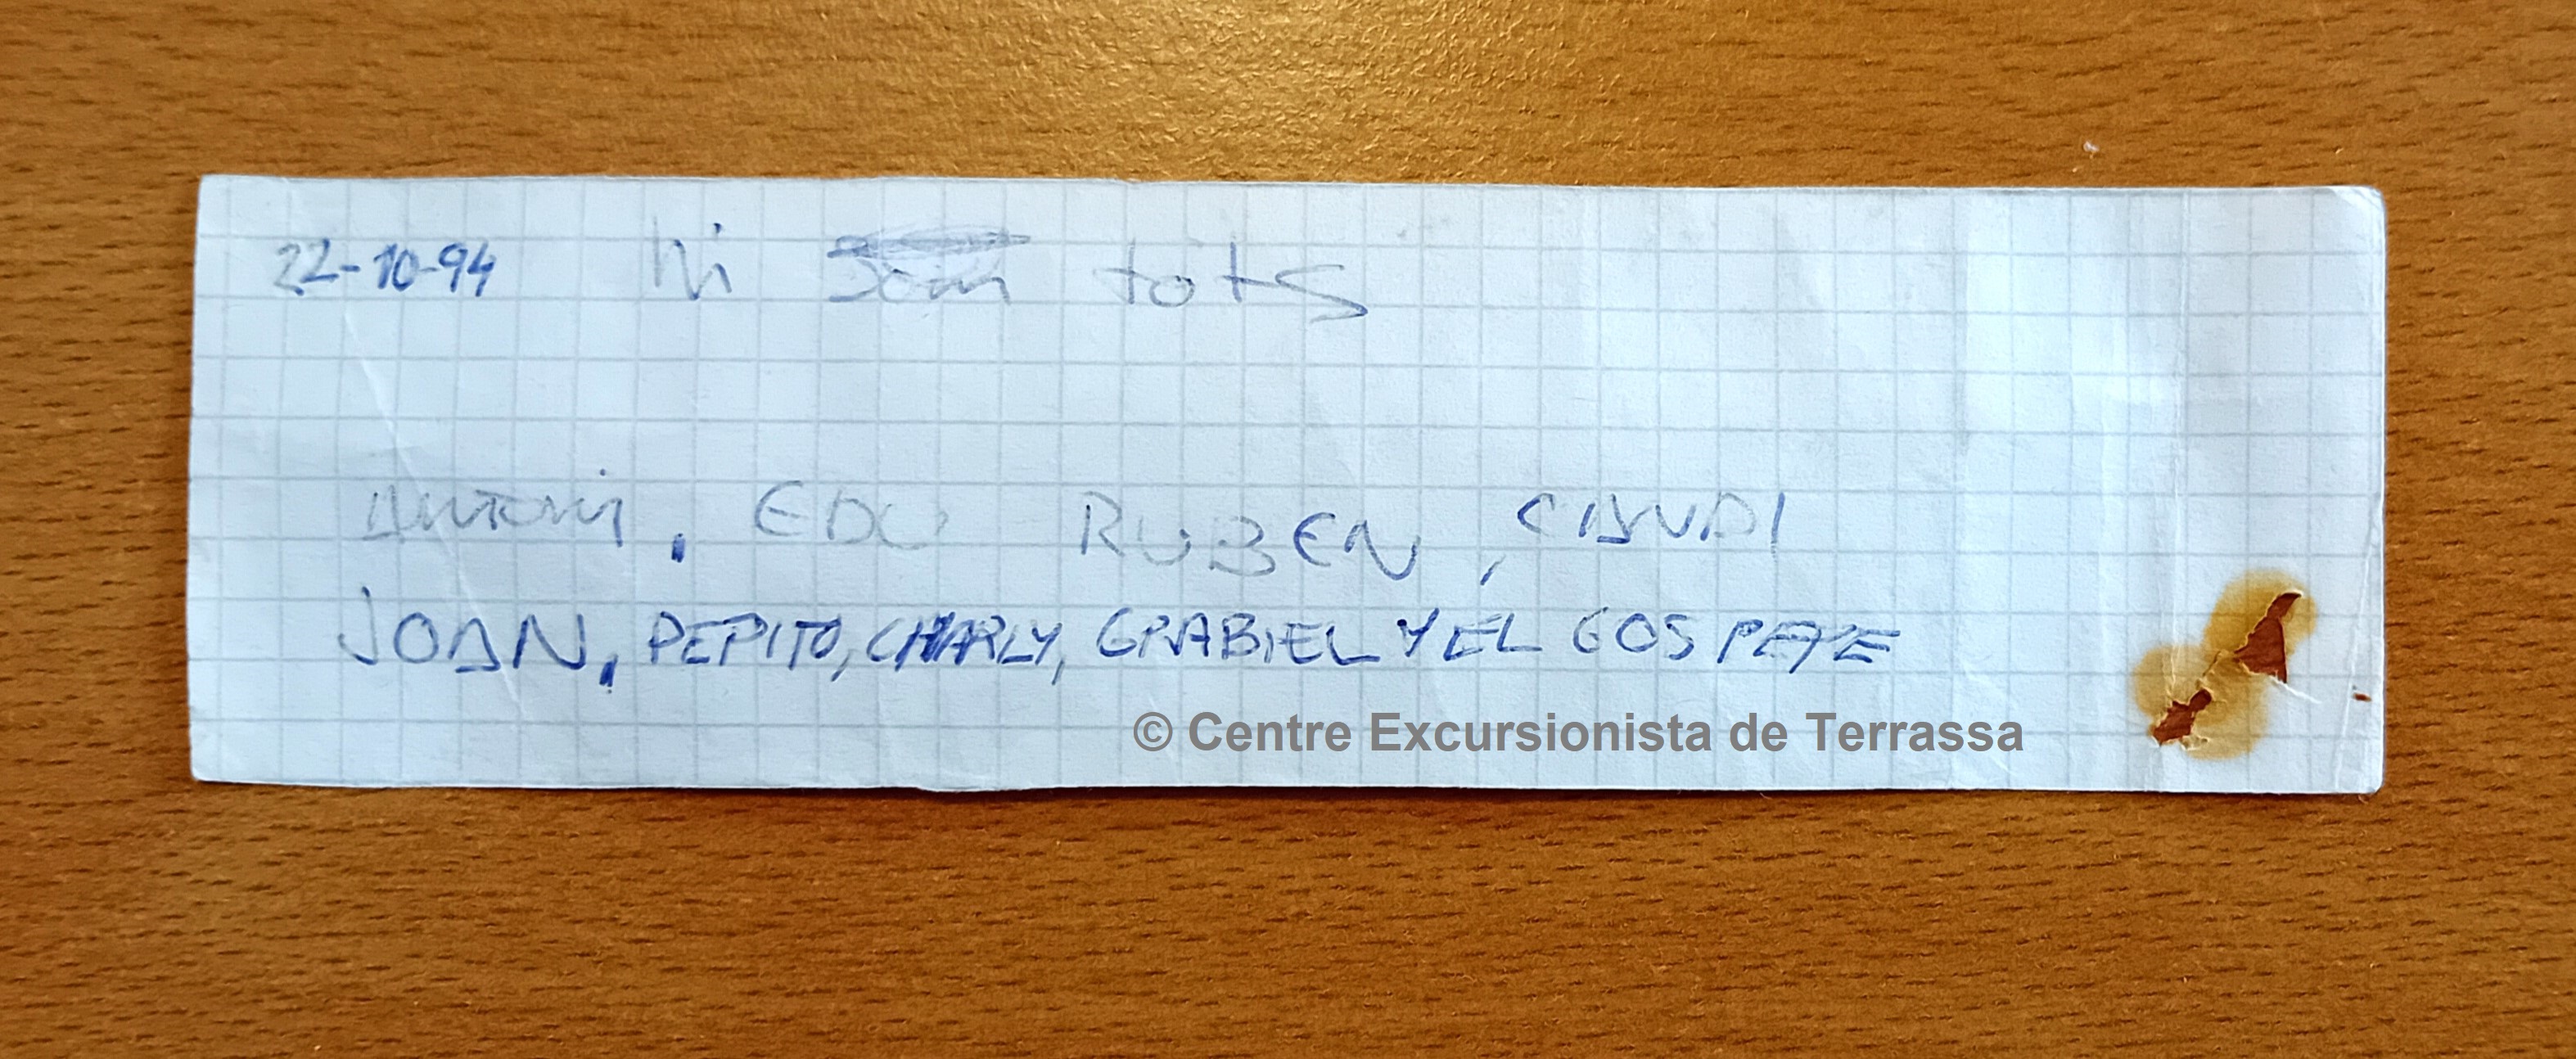 22-10-94 hi som tots
Antoni, EDU RUBEN, CLAUDI
JOAN, PEPITO, CHARLY, GRABIEL Y EL GOS PEPE
© Centre Excursionista de Terrassa